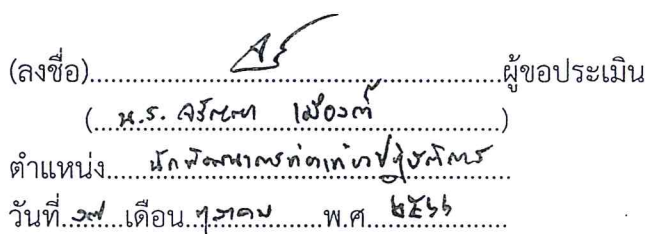 (ลงชื่อ)..................................................ผู้ขอประเมิน
(น.ส. เมืองคำ)
ตำแหน่ง.....นักพัฒนาการท่องเที่ยวปฏิบัติการ
วันที่.๑๗..เดือน.ตุลาคม.......พ.ศ..๒๕๖๖.......